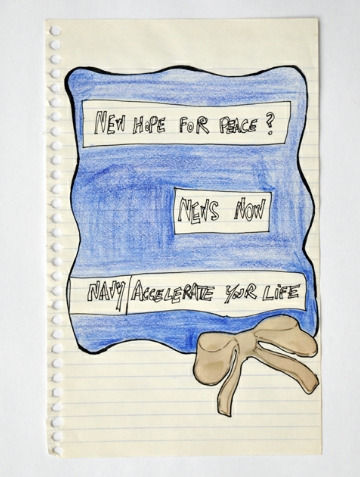 NEW HOPE FOR PEACE?
NEWS NOW
NAVY|ACCELERATE YOUR LIFE